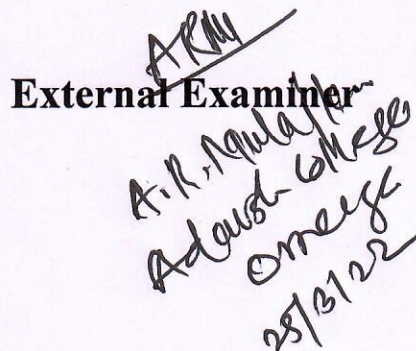 ARM
External Examiner
A.R.
Adarsh College
Omerga
25/3/22